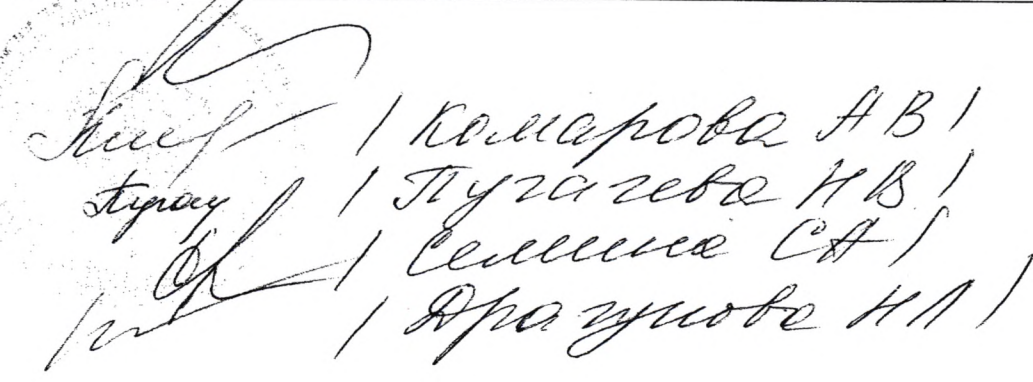 / Комарова А В /
/ Пугачева Н В /
/ Семина С А /
/ Драгунова Н Л /